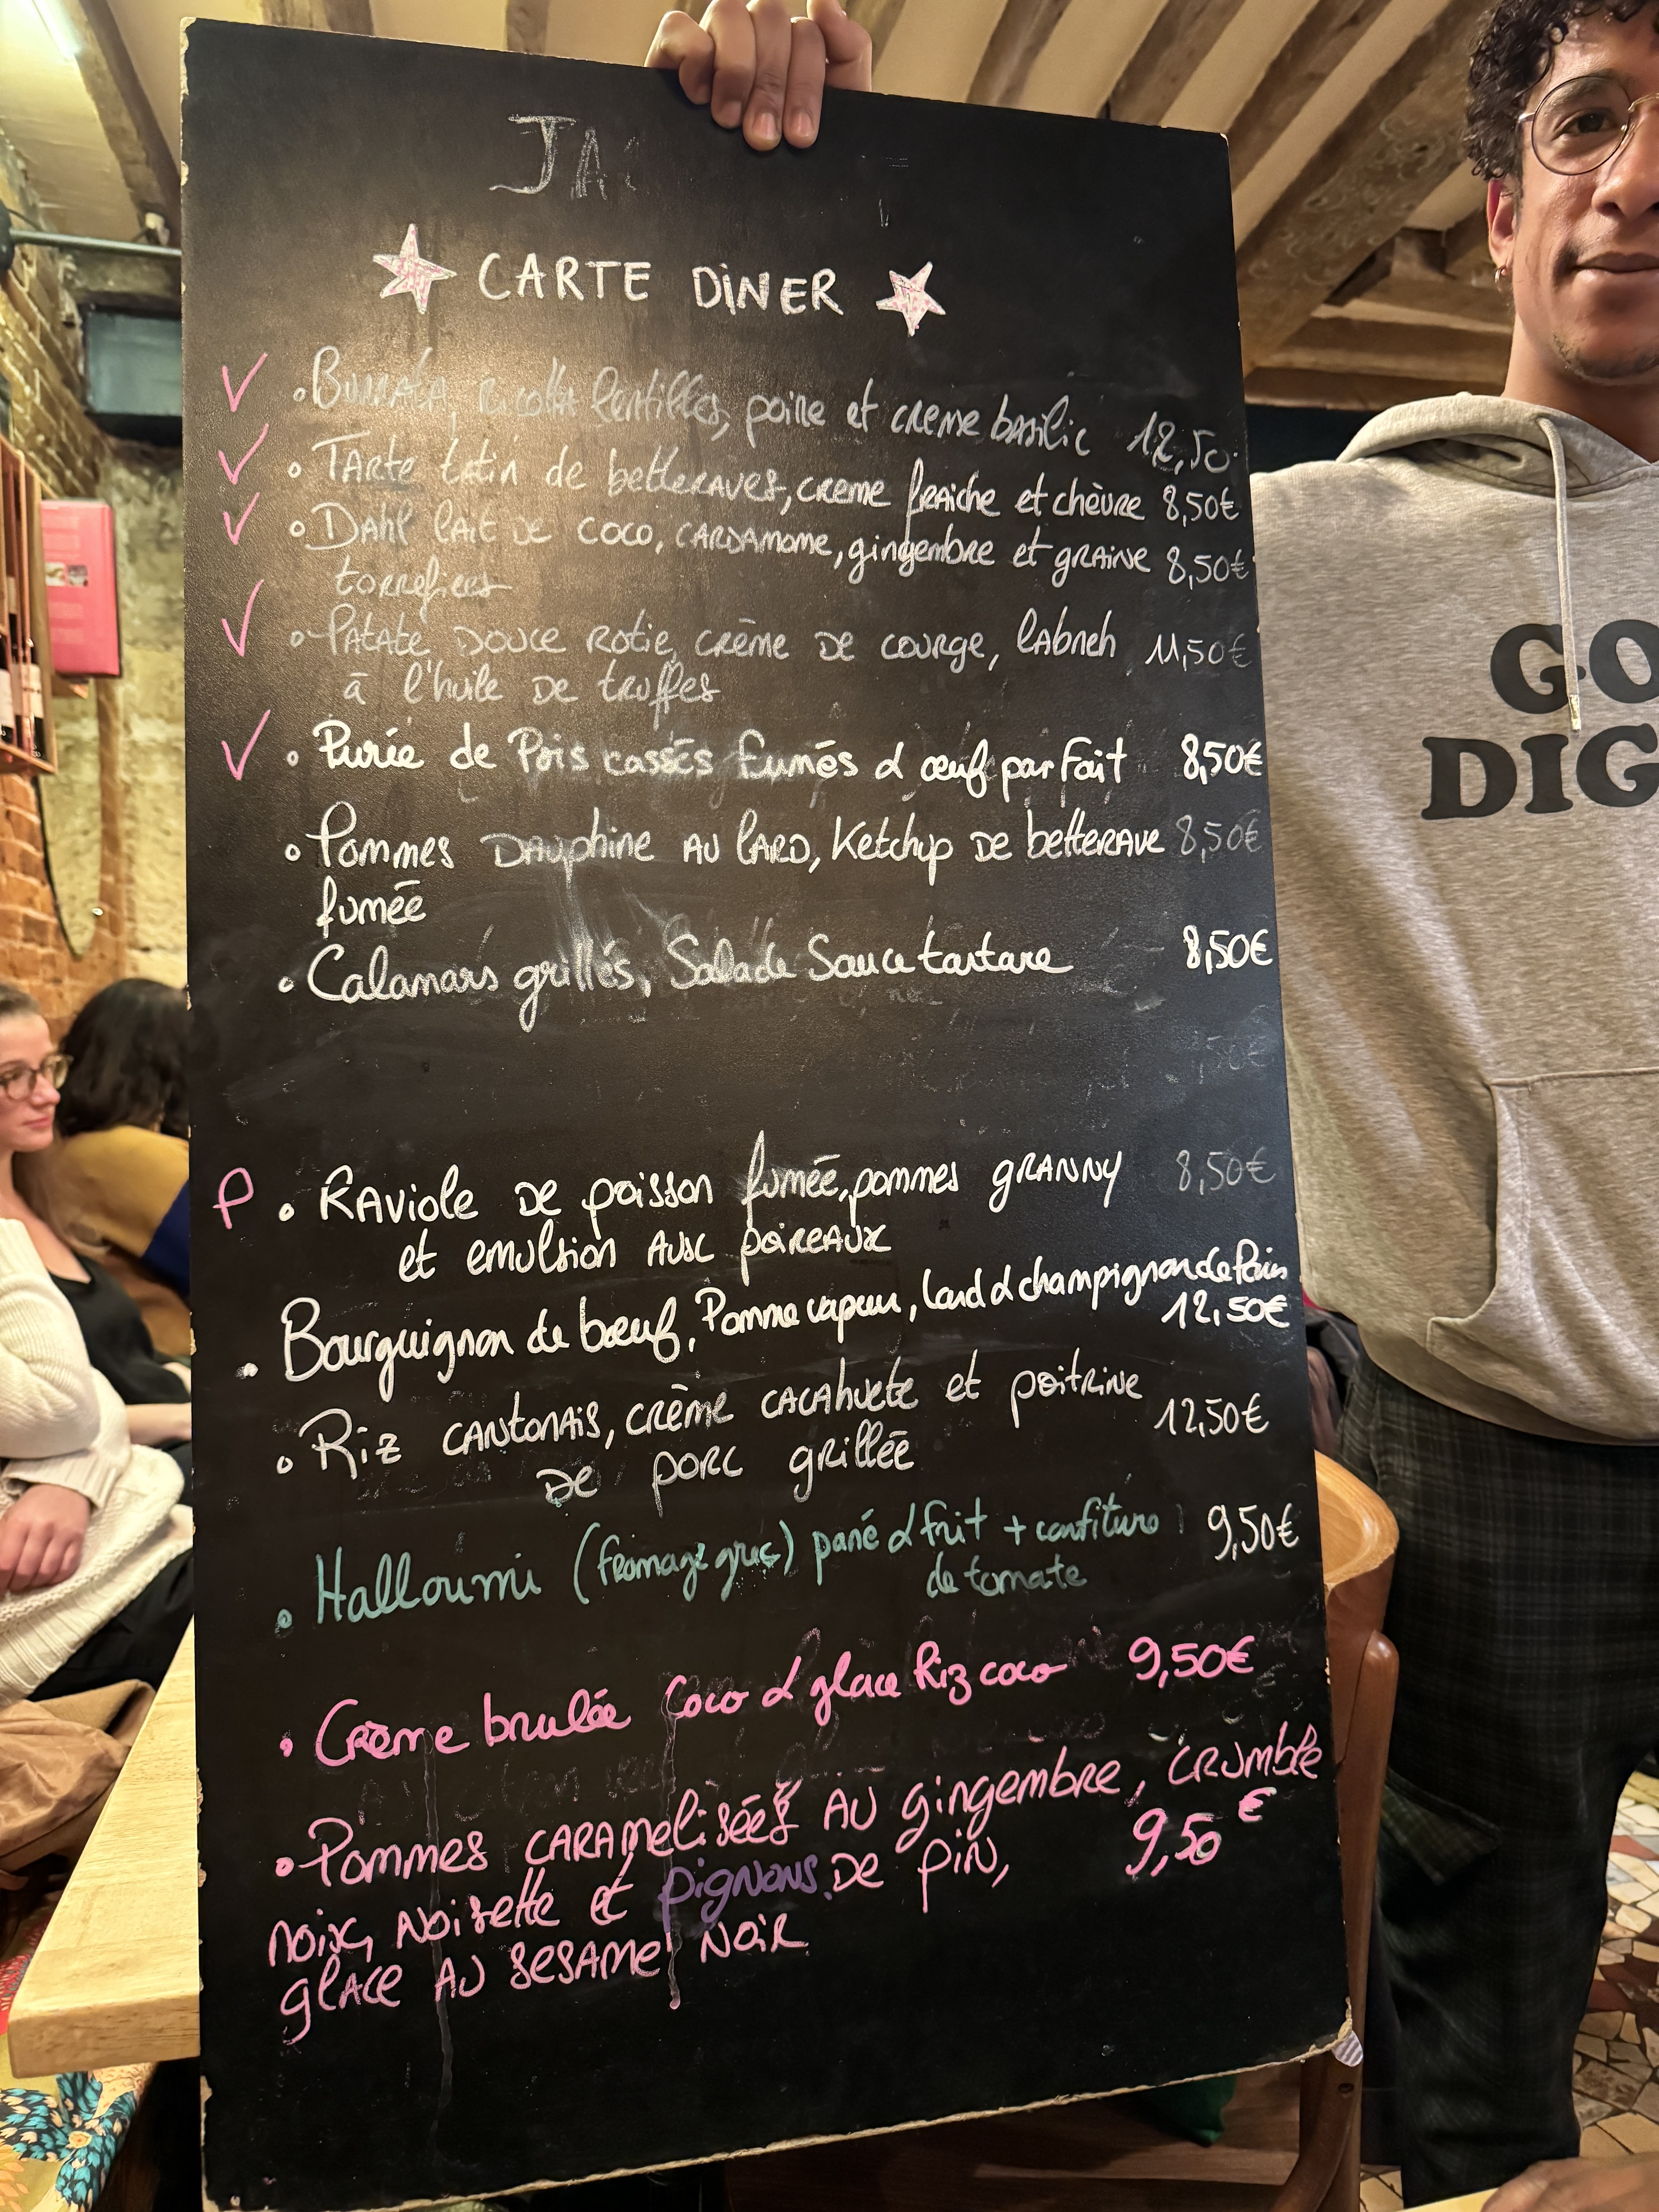 JA
CARTE DÎNER
V • Burrata, Ricotta lentilles, poire et creme basilic 12,50
V • TArte tatin de betteraves, creme fraîche et chèvre 8,50€
V • DAhl lait de coco, cardamome, gingembre et graine 8,50€
torrefiees
V • Patate douce rotie, crème de courge, labneh 11,50€
à l'huile de truffes
V • Purée de Pois cassés fumés & œuf parfait 8,50€
• Pommes Dauphine au lard, Ketchup de betterave 8,50€
fumée
• Calamars grillés, Salade Sauce tartare 8,50€
,50€
P • Raviole de poisson fumée, pommes granny 8,50€
et emulsion aux poireaux
• Bourguignon de bœuf, Pomme vapeur, lard & champignon de Paris
12,50€
• Riz cantonais, crème cacahuete et poitrine 12,50€
de porc grillée
• Halloumi (fromage grec) pané & frit + confiture 9,50€
de tomate
• Crème brulée Coco & glace Riz coco 9,50€
• Pommes caramelisées au gingembre, crumble
noix, noisette et pignons de pin, 9,50€
glace au sesame noir
GO
DIG